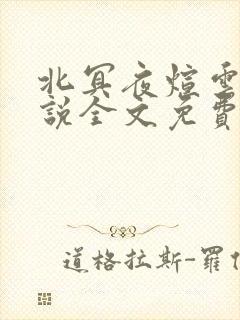 北冥夜煊雲
說全文免費
道格拉斯-羅伯